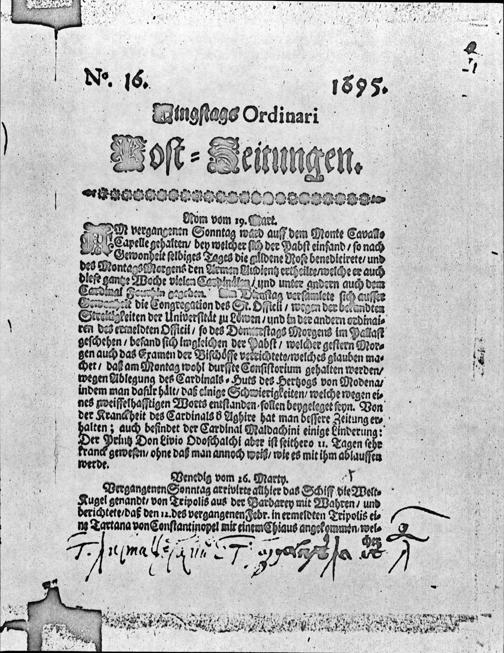 No. 16. 1695.
Dingstags Ordinari
Post-Zeitungen.
Rom vom 19. Mart.
AM vergangenen Sonntag ward auff dem Monte Cavallo
Capelle gehalten/ bey welcher sich der Pabst einfand/ so nach
Gewonheit selbiges Tages die güldene Rose benedicirete/ und
des Montags Morgens den Armen Audientz ertheilte/welche er auch
diese gantze Woche vielen Cardinälen/ und unter andern auch dem
Cardinal gegeben. Am Dienstag versamlete sich ausser
Gewonheit die Congregation des St. Officii/ wegen der bekandten
Streitigkeiten der Universität zu Löwen/ und in der andern ordinai-
ren des ermeldten Officii/ so des Donnerstags Morgens im Pallast
geschehen/ befand sich imgleichen der Pabst/ welcher gestern Mor-
gen auch das Examen der Bischöffe verrichtete/welches glauben ma-
chet/ daß am Montag wohl durffte Consistorium gehalten werden/
wegen Ablegung des Cardinals-Huts des Hertzogs von Modena/
indem man dafür hält/ daß einige Schwierigkeiten/ welche wegen ei-
nes zweiffelhafftigen Worts entstanden/ sollen beygeleget seyn. Von
der Kranckheit des Cardinals d Aghire hat man bessere Zeitung er-
halten; auch befindet der Cardinal Maldachini einige Linderung:
Der Printz Don Livio Odoschalchi aber ist seithero 11. Tagen sehr
kranck gewesen/ ohne daß man annoch weiß/ wie es mit ihm ablauffen
werde.
Venedig vom 26. Marty.
Vergangenen Sonntag arrivirte allhier das Schiff die Welt-
Kugel genandt/ von Tripolis aus der Barbarey mit Wahren/ und
berichtete/ daß den 12. des vergangenen Febr. in ermeldten Tripolis ei-
ne Tartana von Constantinopel mit einem Chiaus angekommen/ wel-
cher